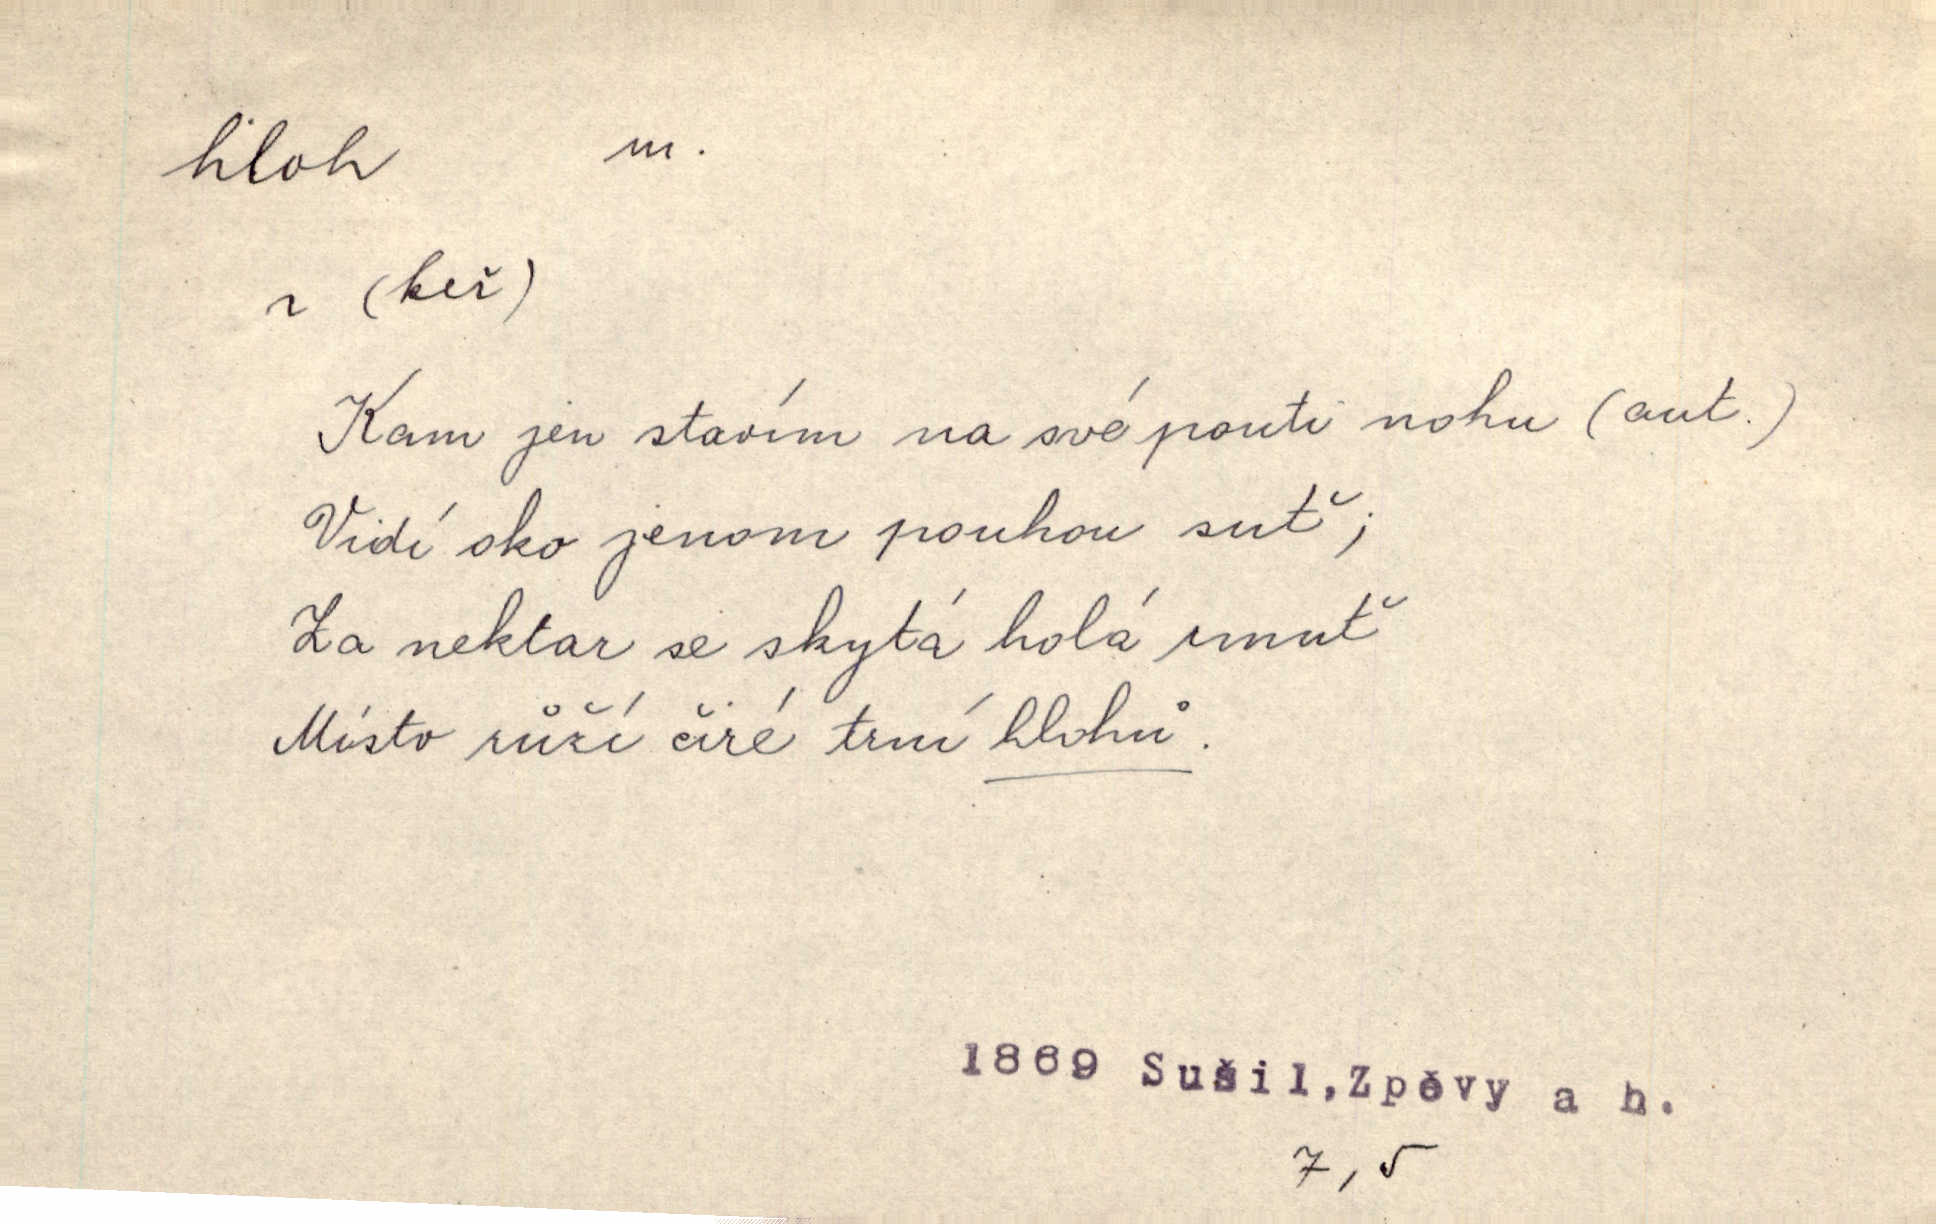 hloh m.
r (keř)
Kam jen stavím na své pouti nohu (aut.)
Vidí oko jenom pouhou suť;
Za nektar se skytá holá rmuť
Místo růží čiré trní hlohů.
1869 Sušil,Zpěvy a h.
7, 5